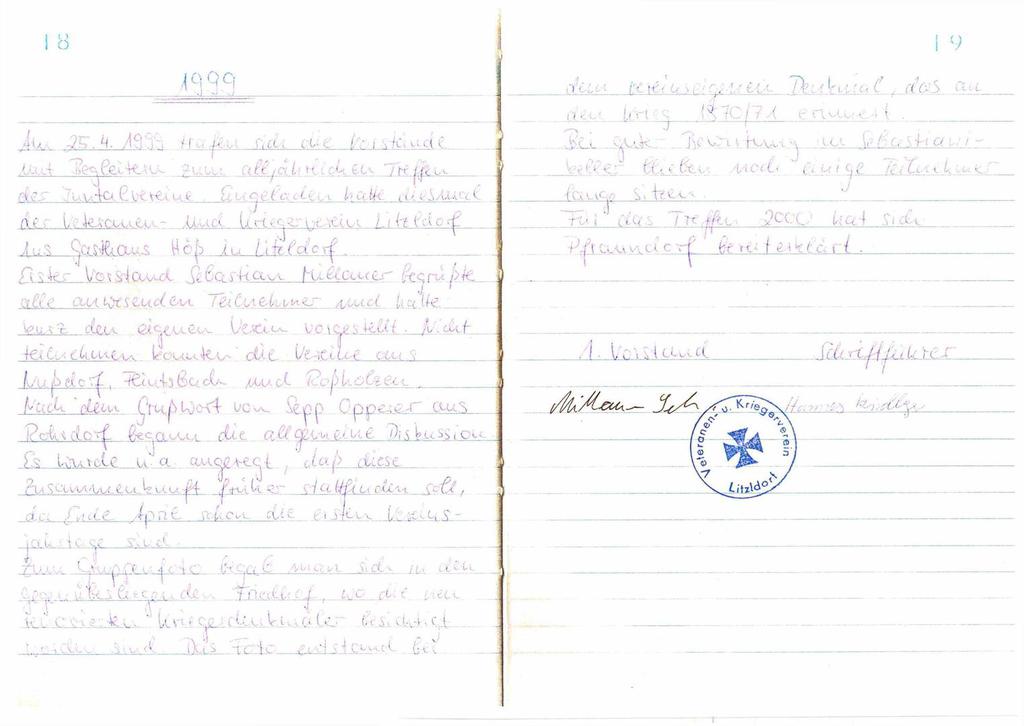 18
1999
Am 25.4.1999 trafen sich die Vorstände
mit Begleitern zum alljährlichen Treffen
der Inntalvereine. Eingeladen hatte diesmal
der Veteranen- und Kriegerverein Litzldorf
ins Gasthaus Höß in Litzldorf.
Erster Vorstand Sebastian Millauer begrüßte
alle anwesenden Teilnehmer und hatte
kurz den eigenen Verein vorgestellt. Nicht
teilnehmen konnten die Vereine aus
Nußdorf, Flintsbach und Roßholzen.
Nach dem Grußwort von Sepp Opperer aus
Rohrdorf begann die allgemeine Diskussion
Es wurde u.a. angeregt, daß diese
Zusammenkunft früher stattfinden soll,
da Ende April schon die ersten Vereins-
jahrtage sind.
Zum Gruppenfoto begab man sich in den
gegenüberliegenden Friedhof, wo die neu
renovierten Kriegerdenkmäler besichtigt
worden sind. Das Foto entstand bei
19
dem vereinseigenen Denkmal, das an
den Krieg 1870/71 erinnert.
Bei guter Bewirtung im Sebastiani-
keller blieben noch einige Teilnehmer
lange sitzen.
Für das Treffen 2000 hat sich
Pfraundorf bereiterklärt.
1. Vorstand Schriftführer
Millauer Seb Hannes
Veteranen- u. Kriegerverein
Litzldorf